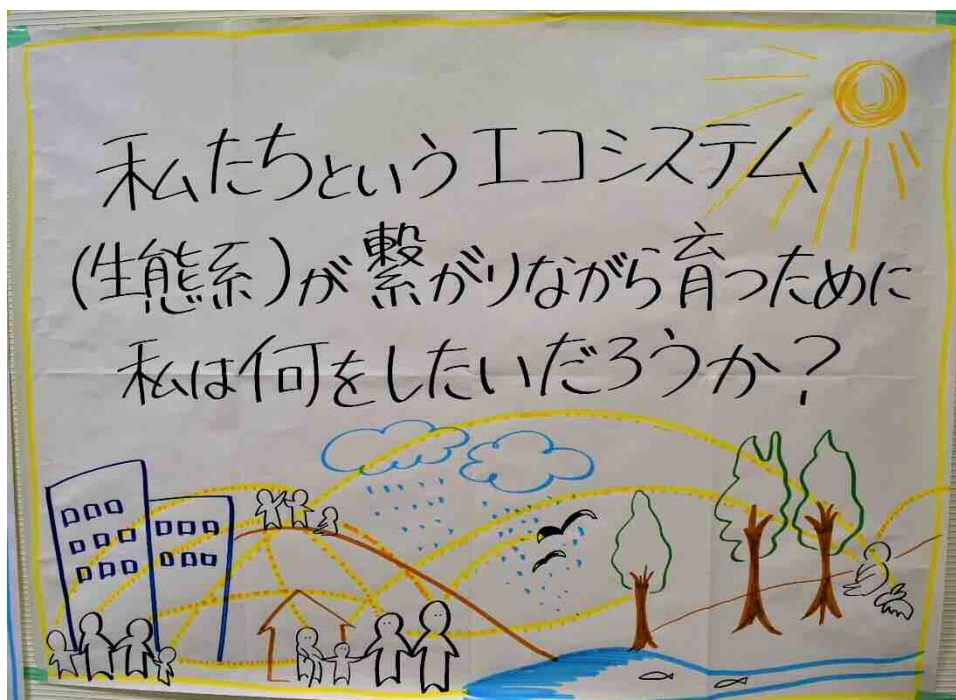 私たちというエコシステム
(生態系)が繋がりながら育つために
私は何をしたいだろうか？